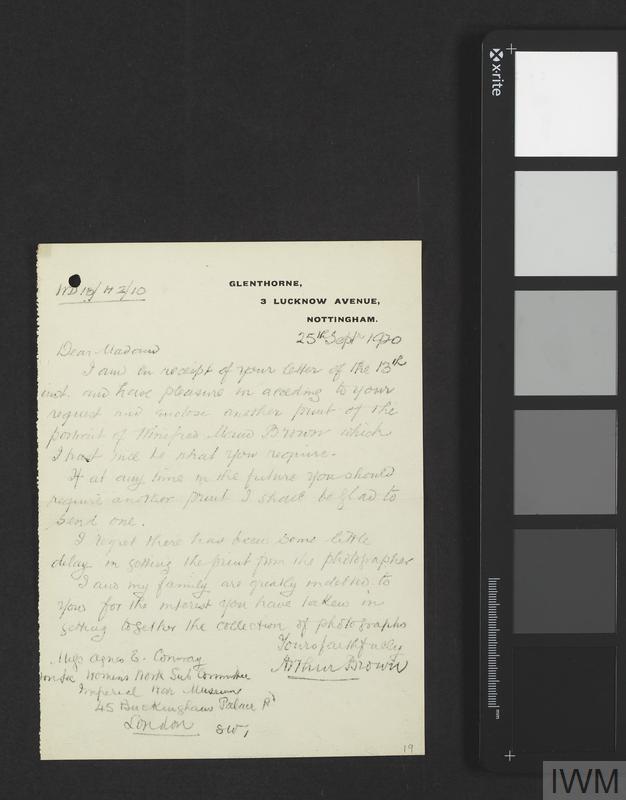 WD 18/H 2/10
GLENTHORNE,
3 LUCKNOW AVENUE,
NOTTINGHAM.
25th Sept 1920
Dear Madam
I am in receipt of your letter of the 13th
inst. and have pleasure in acceding to your
request and enclose another print of the
portrait of Winifred Maud Brown which
I trust will be what you require.
If at any time in the future you should
require another print I shall be glad to
send one.
I regret there has been some little
delay in getting the print from the photographer
I and my family are greatly indebted to
you for the interest you have taken in
getting together the collection of photographs
Yours faithfully
Arthur Brown
Miss Agnes E. Conway
Womens Work Sub Committee
Imperial War Museum
45 Buckingham Palace Rd
London SW1
19
x-rite
mm
IWM